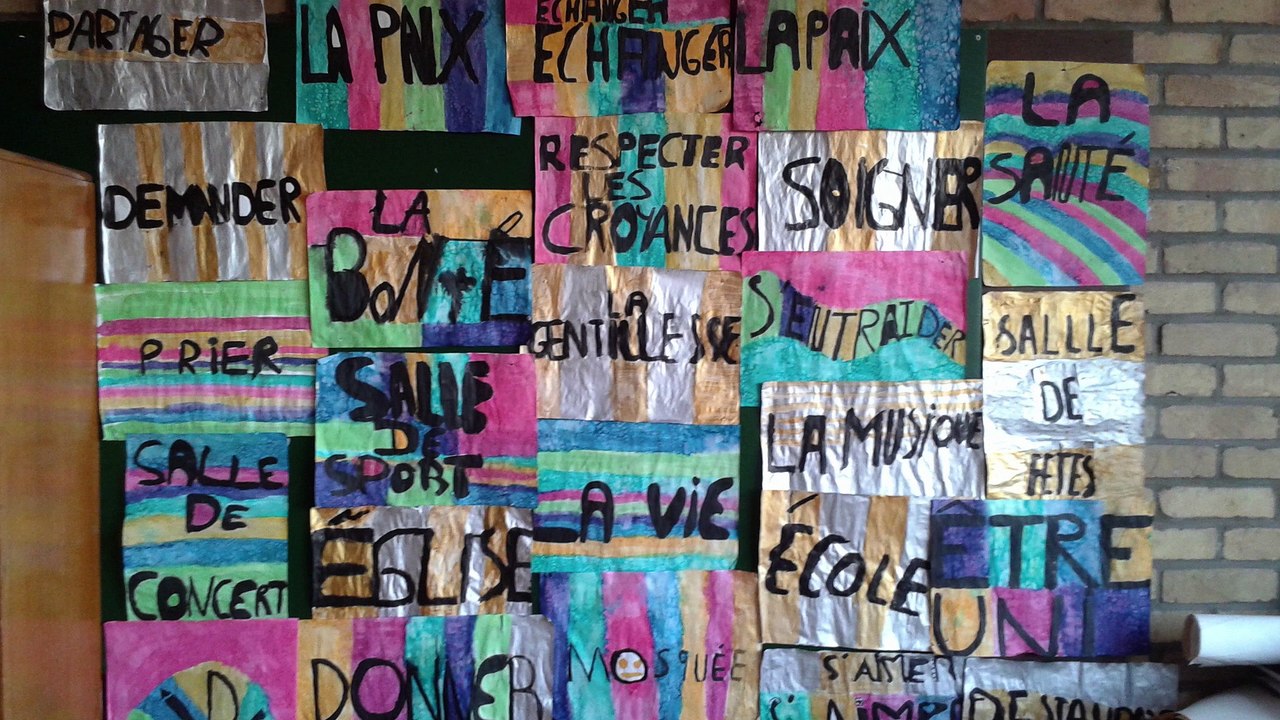 PARTAGER
LA PAIX
ECHANGER
ECHANGER
LA PAIX
LA
SANTÉ
DEMANDER
RESPECTER
LES
CROYANCES
SOIGNER
LA
BONTÉ
PRIER
LA
GENTILLESSE
S'ENTRAIDER
SALLLE
DE
FETES
SALLE
DE
SPORT
LA MUSIQUE
SALLE
DE
CONCERT
LA VIE
ÉGLISE
ÉCOLE
ÊTRE
UNI
DONNER
MOSQUÉE
S'AIMER